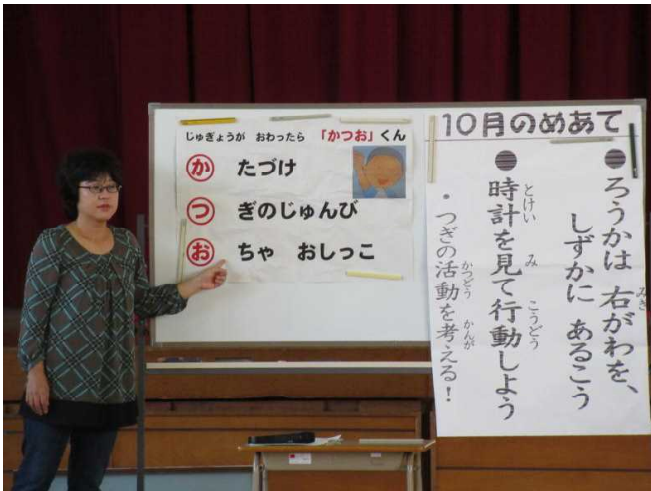 じゅぎょうが おわったら 「かつお」くん
か たづけ
つ ぎのじゅんび
お ちゃ おしっこ
10月のめあて
●ろうかは 右がわを、
しずかに あるこう
●時計を見て行動しよう
・つぎの活動を考える！